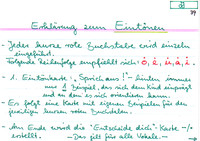 77
Erklärung zum Eintönen
- Jeder kurze rote Buchstabe wird einzeln
eingeführt.
Folgende Reihenfolge empfiehlt sich:
- 1. Eintönkarte: "Sprich aus!" - hinten immer
nur 1 Beispiel, das sich dem Kind einprägt
und an dem es sich orientieren kann.
- Es folgt eine Karte mit eigenen Beispielen für den
jeweiligen kurzen roten Buchstaben.
- Am Ende wird die "Entscheide dich"-Karte
erstellt. - Das gilt für alle Vokale -